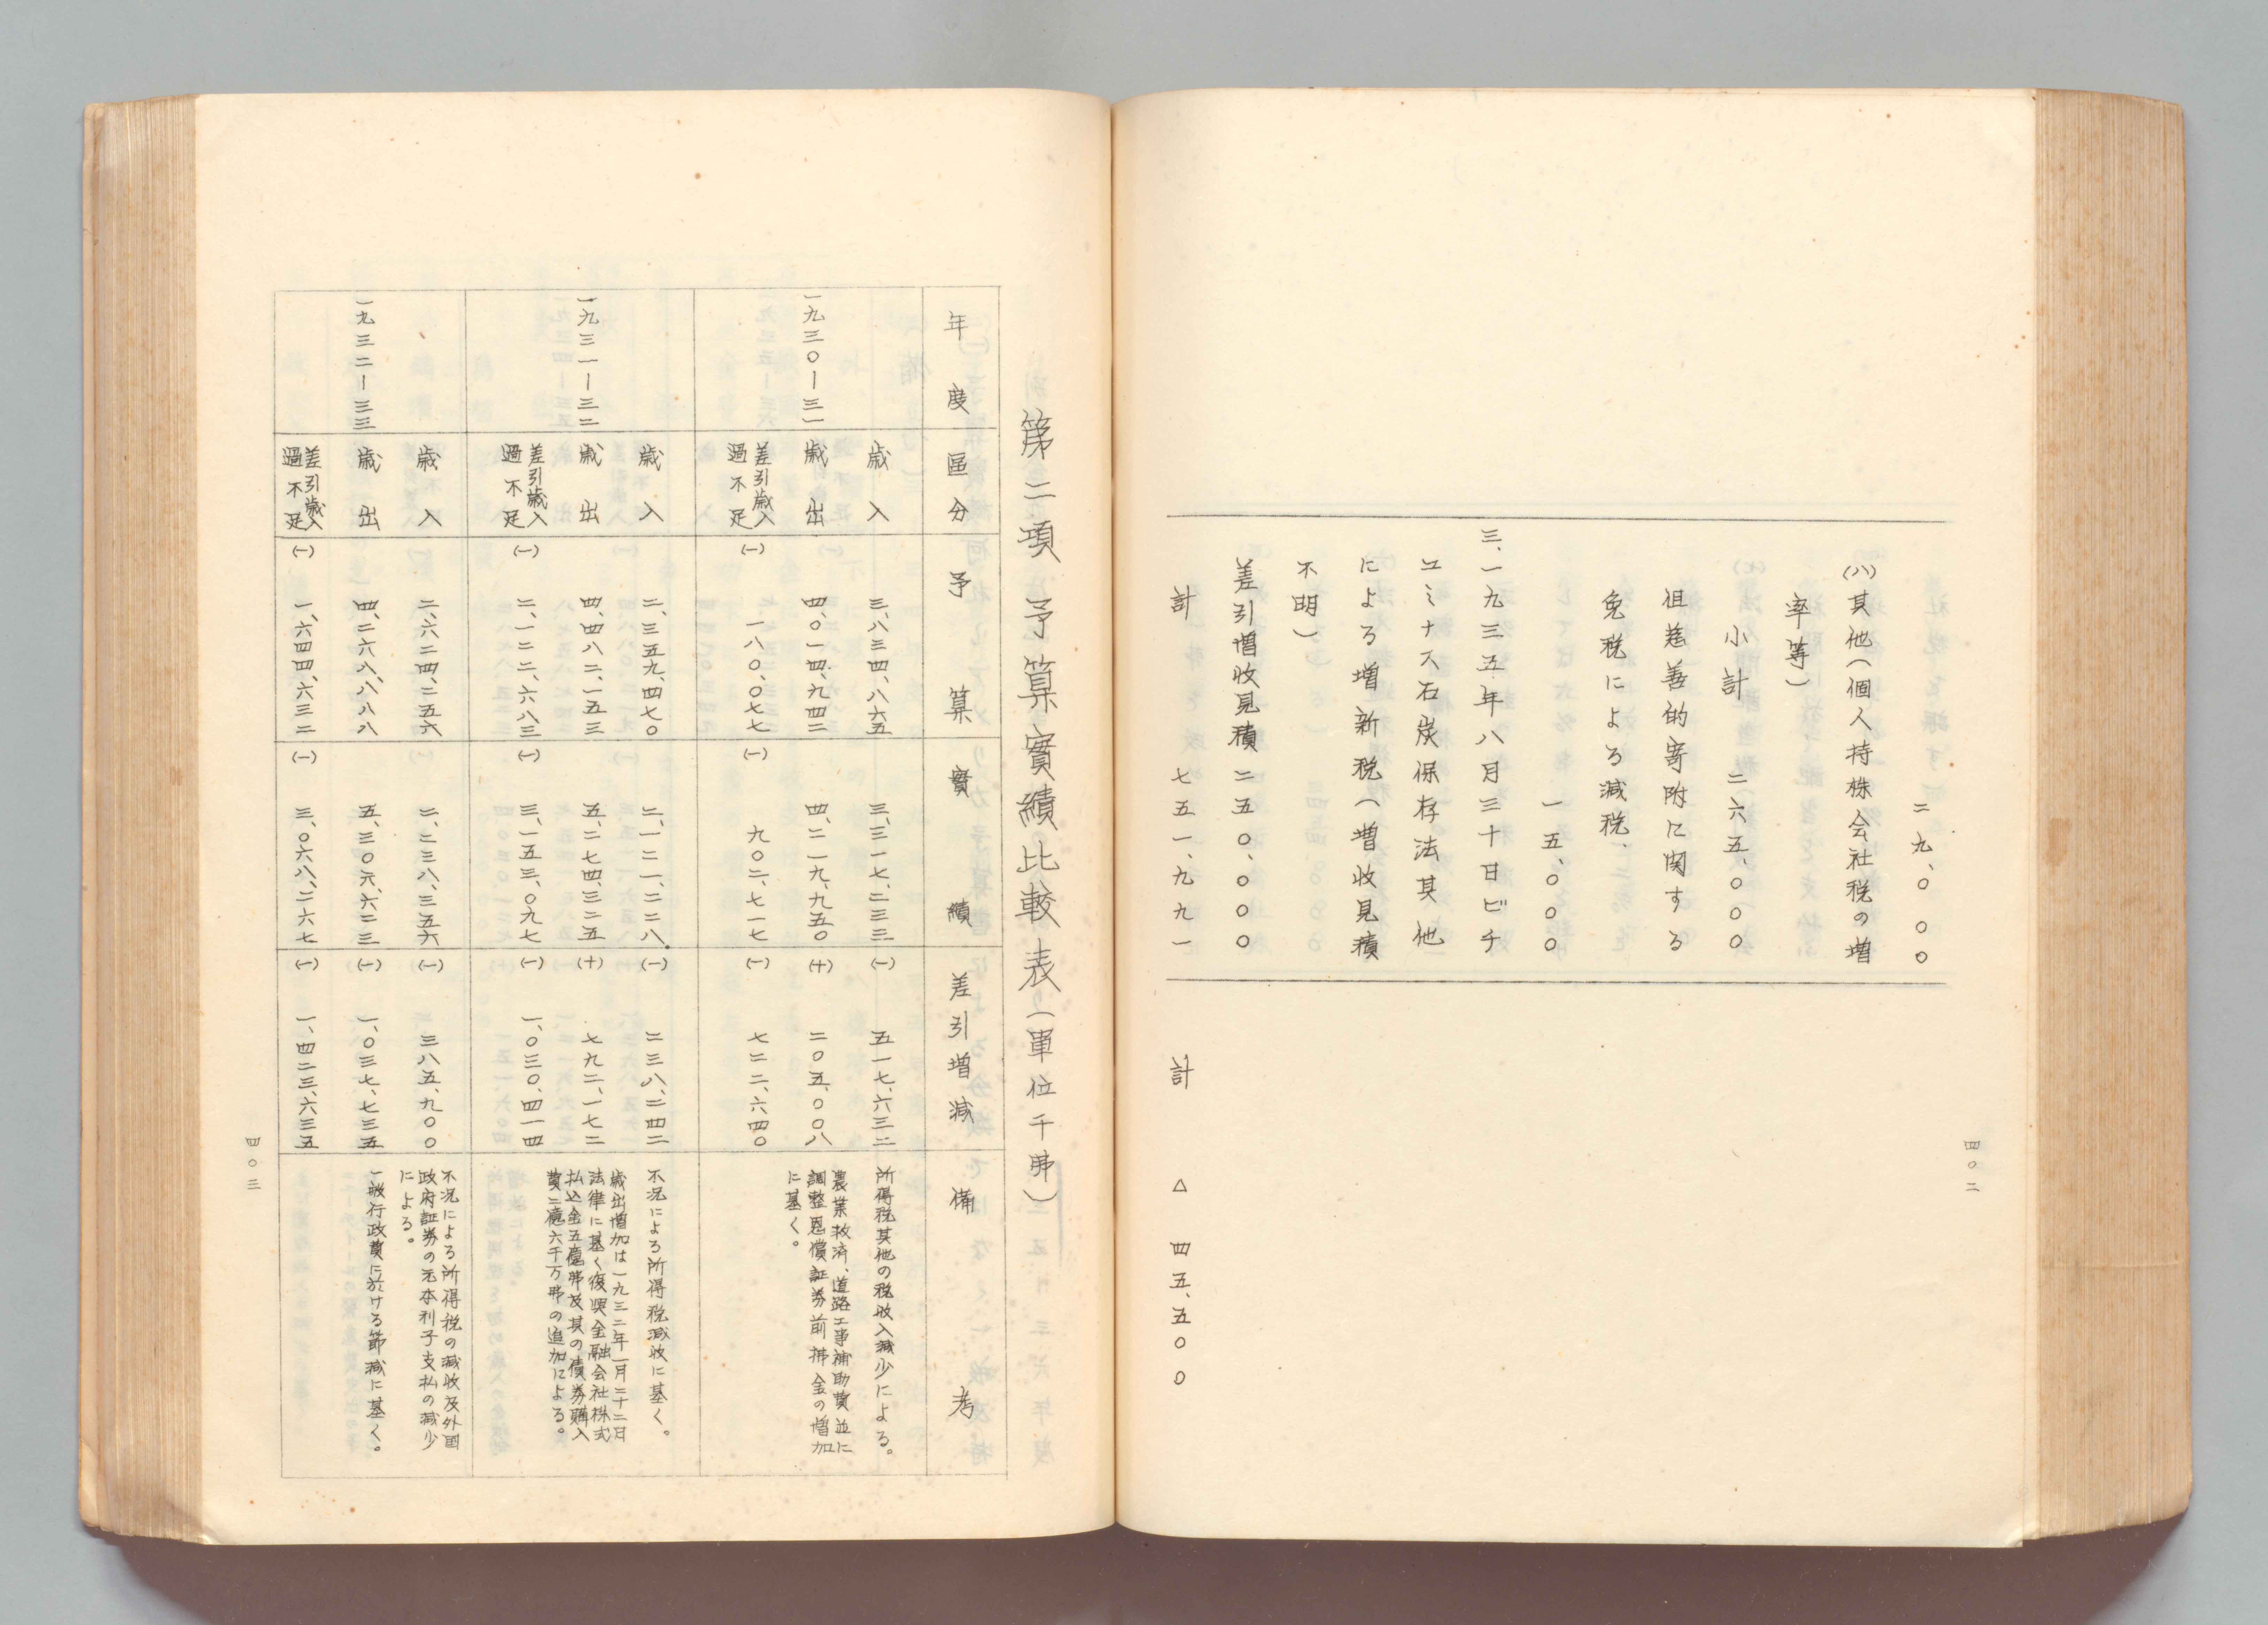 四〇二
二九、〇〇〇
(八)其他(個人持株会社税の増
率等)
小計 二六五、〇〇〇
但慈善的寄附に関する
免税による減税、
一五、〇〇〇
三、一九三五年八月三十日ビチ
ユミナス石炭保存法其他
による増新税(増收見積
不明)
差引増收見積 二五〇、〇〇〇
計 七五一、九九一
計 △ 四五、五〇〇
第二項 予算實績比較表(單位千弗)
年度 區分 予算 實績 差引増減 備考
一九三〇ー三一
歳入 三、八三四、八六五 三、三一七、二三三 (一) 五一七、六三二 所得税其他の税收入減少による。
歳出 四、〇一四、九四二 四、二一九、九五〇 (十) 二〇五、〇〇八 農業救済、道路工事補助費並に
調整恩償証券前拂金の増加
に基く。
差引歳入
過不足 (一) 一八〇、〇七七 (一) 九〇二、七一七 (一) 七二二、六四〇
一九三一ー三二
歳入 二、三五九、四七〇 二、一二一、二二八 (一) 二三八、二四二 不況による所得税減收に基く。
歳出 四、四八二、一五三 五、二七四、三二五 (十) 七九二、一七二 歳出増加は一九三二年一月二十二日
法律に基く復興金融会社株式
払込金五億弗及其の債券購入
費二億六千万弗の追加による。
差引歳入
過不足 (一) 二、一二二、六八三 (一) 三、一五三、〇九七 (一) 一、〇三〇、四一四
一九三二ー三三
歳入 二、六二四、二五六 二、二三八、三五六 (一) 三八五、九〇〇 不況による所得税の減收及外国
政府証券の元本利子支払の減少
による。
歳出 四、二六八、八八八 五、三〇六、六二三 (一) 一、〇三七、七三五 一般行政費に於ける節減に基く。
差引歳入
過不足 (一) 一、六四四、六三二 (一) 三、〇六八、二六七 (一) 一、四二三、六三五
四〇三